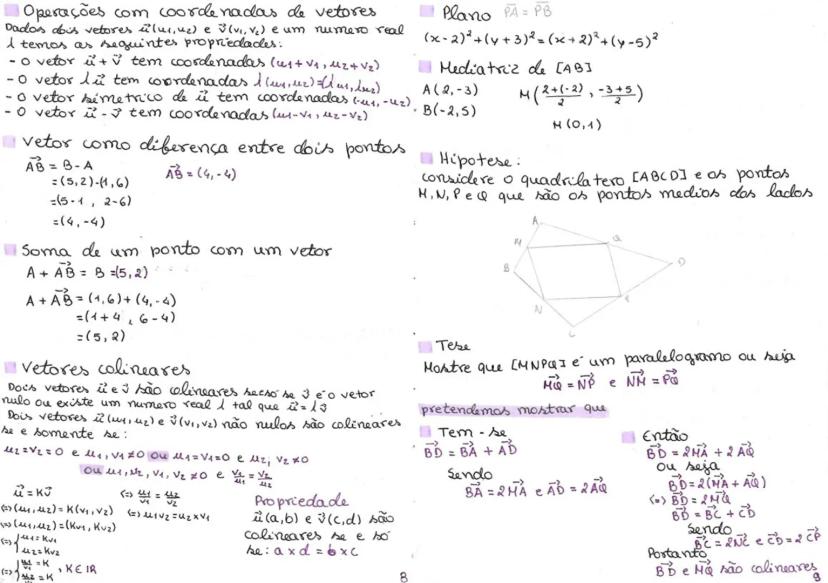 Operações com coordenadas de vetores
Dados dois vetores u⃗(u1,u2) e v⃗(v1,v2) e um numero real
λ temos as seguintes propriedades:
- O vetor u⃗ + v⃗ tem coordenadas (u1+v1, u2+v2)
- O vetor λu⃗ tem coordenadas λ(u1,u2)=(λu1,λu2)
- O vetor simetrico de u⃗ tem coordenadas (-u1,-u2)
- O vetor u⃗ - v⃗ tem coordenadas (u1-v1, u2-v2)
Vetor como diferença entre dois pontos
AB⃗ = B - A    AB⃗ = (4,-4)
=(5,2)-(1,6)
=(5-1, 2-6)
=(4,-4)
Soma de um ponto com um vetor
A + AB⃗ = B =(5,2)
A + AB⃗ = (1,6)+(4,-4)
=(1+4, 6-4)
=(5,2)
Vetores colineares
Dois vetores u⃗ e v⃗ são colineares se e só se v⃗ é o vetor
nulo ou existe um numero real λ tal que u⃗ = λv⃗
Dois vetores u⃗(u1,u2) e v⃗(v1,v2) não nulos são colineares
se e somente se:
u2=v2=0 e u1,v1≠0 ou u1=v1=0 e u2,v2≠0
ou u1,u2,v1,v2≠0 e
u⃗ = Kv⃗
⇔(u1,u2)=K(v1,v2)
⇔(u1,u2)=(Kv1,Kv2)
⇔{u1=Kv1
u2=Kv2
⇔{u1/v1=K
u2/v2=K , K∈IR
⇔ u1/v1 = u2/v2
⇔ u1v2=u2×v1
Propriedade
u⃗(a,b) e v⃗(c,d) são
colineares se e só
se: a×d = b×c
8
Plano PA = PB
(x-2)²+(y+3)²=(x+2)²+(y-5)²
Mediatriz de [AB]
A(2,-3)    M(2+(-2)/2, -3+5/2)
B(-2,5)
M(0,1)
Hipotese:
considere o quadrilatero [ABCD] e os pontos
M,N,P e Q que são os pontos medios dos lados
A
M
Q
B
D
N
P
C
Tese
Mostre que [MNPQ] é um paralelogramo ou seja
MQ⃗ = NP⃗ e NM⃗ = PQ⃗
pretendemos mostrar que
Tem-se
BD⃗ = BA⃗ + AD⃗
Sendo
BA⃗ = 2MA⃗ e AD⃗ = 2AQ⃗
Então
BD⃗ = 2MA⃗ + 2AQ⃗
Ou seja
BD⃗=2(MA⃗ + AQ⃗)
⇔ BD⃗ = 2MQ⃗
BD⃗ = BC⃗ + CD⃗
Sendo
BC⃗ = 2NC⃗ e CD⃗ = 2CP⃗
Portanto
BD⃗ e MQ⃗ são colineares
9